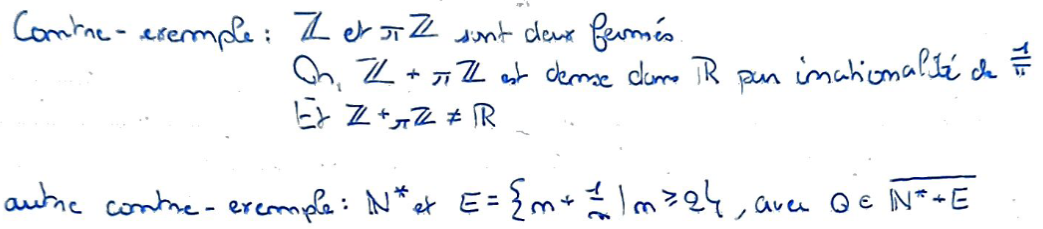 Contre-exemple : ℤ et πℤ sont deux fermés.
Or, ℤ + πℤ est dense dans ℝ par irrationalité de 1/π
Et ℤ + πℤ ≠ ℝ
autre contre-exemple : ℕ* et E = {n + 1/n | n ≥ 2}, avec 0 ∈ \overline{ℕ* + E}